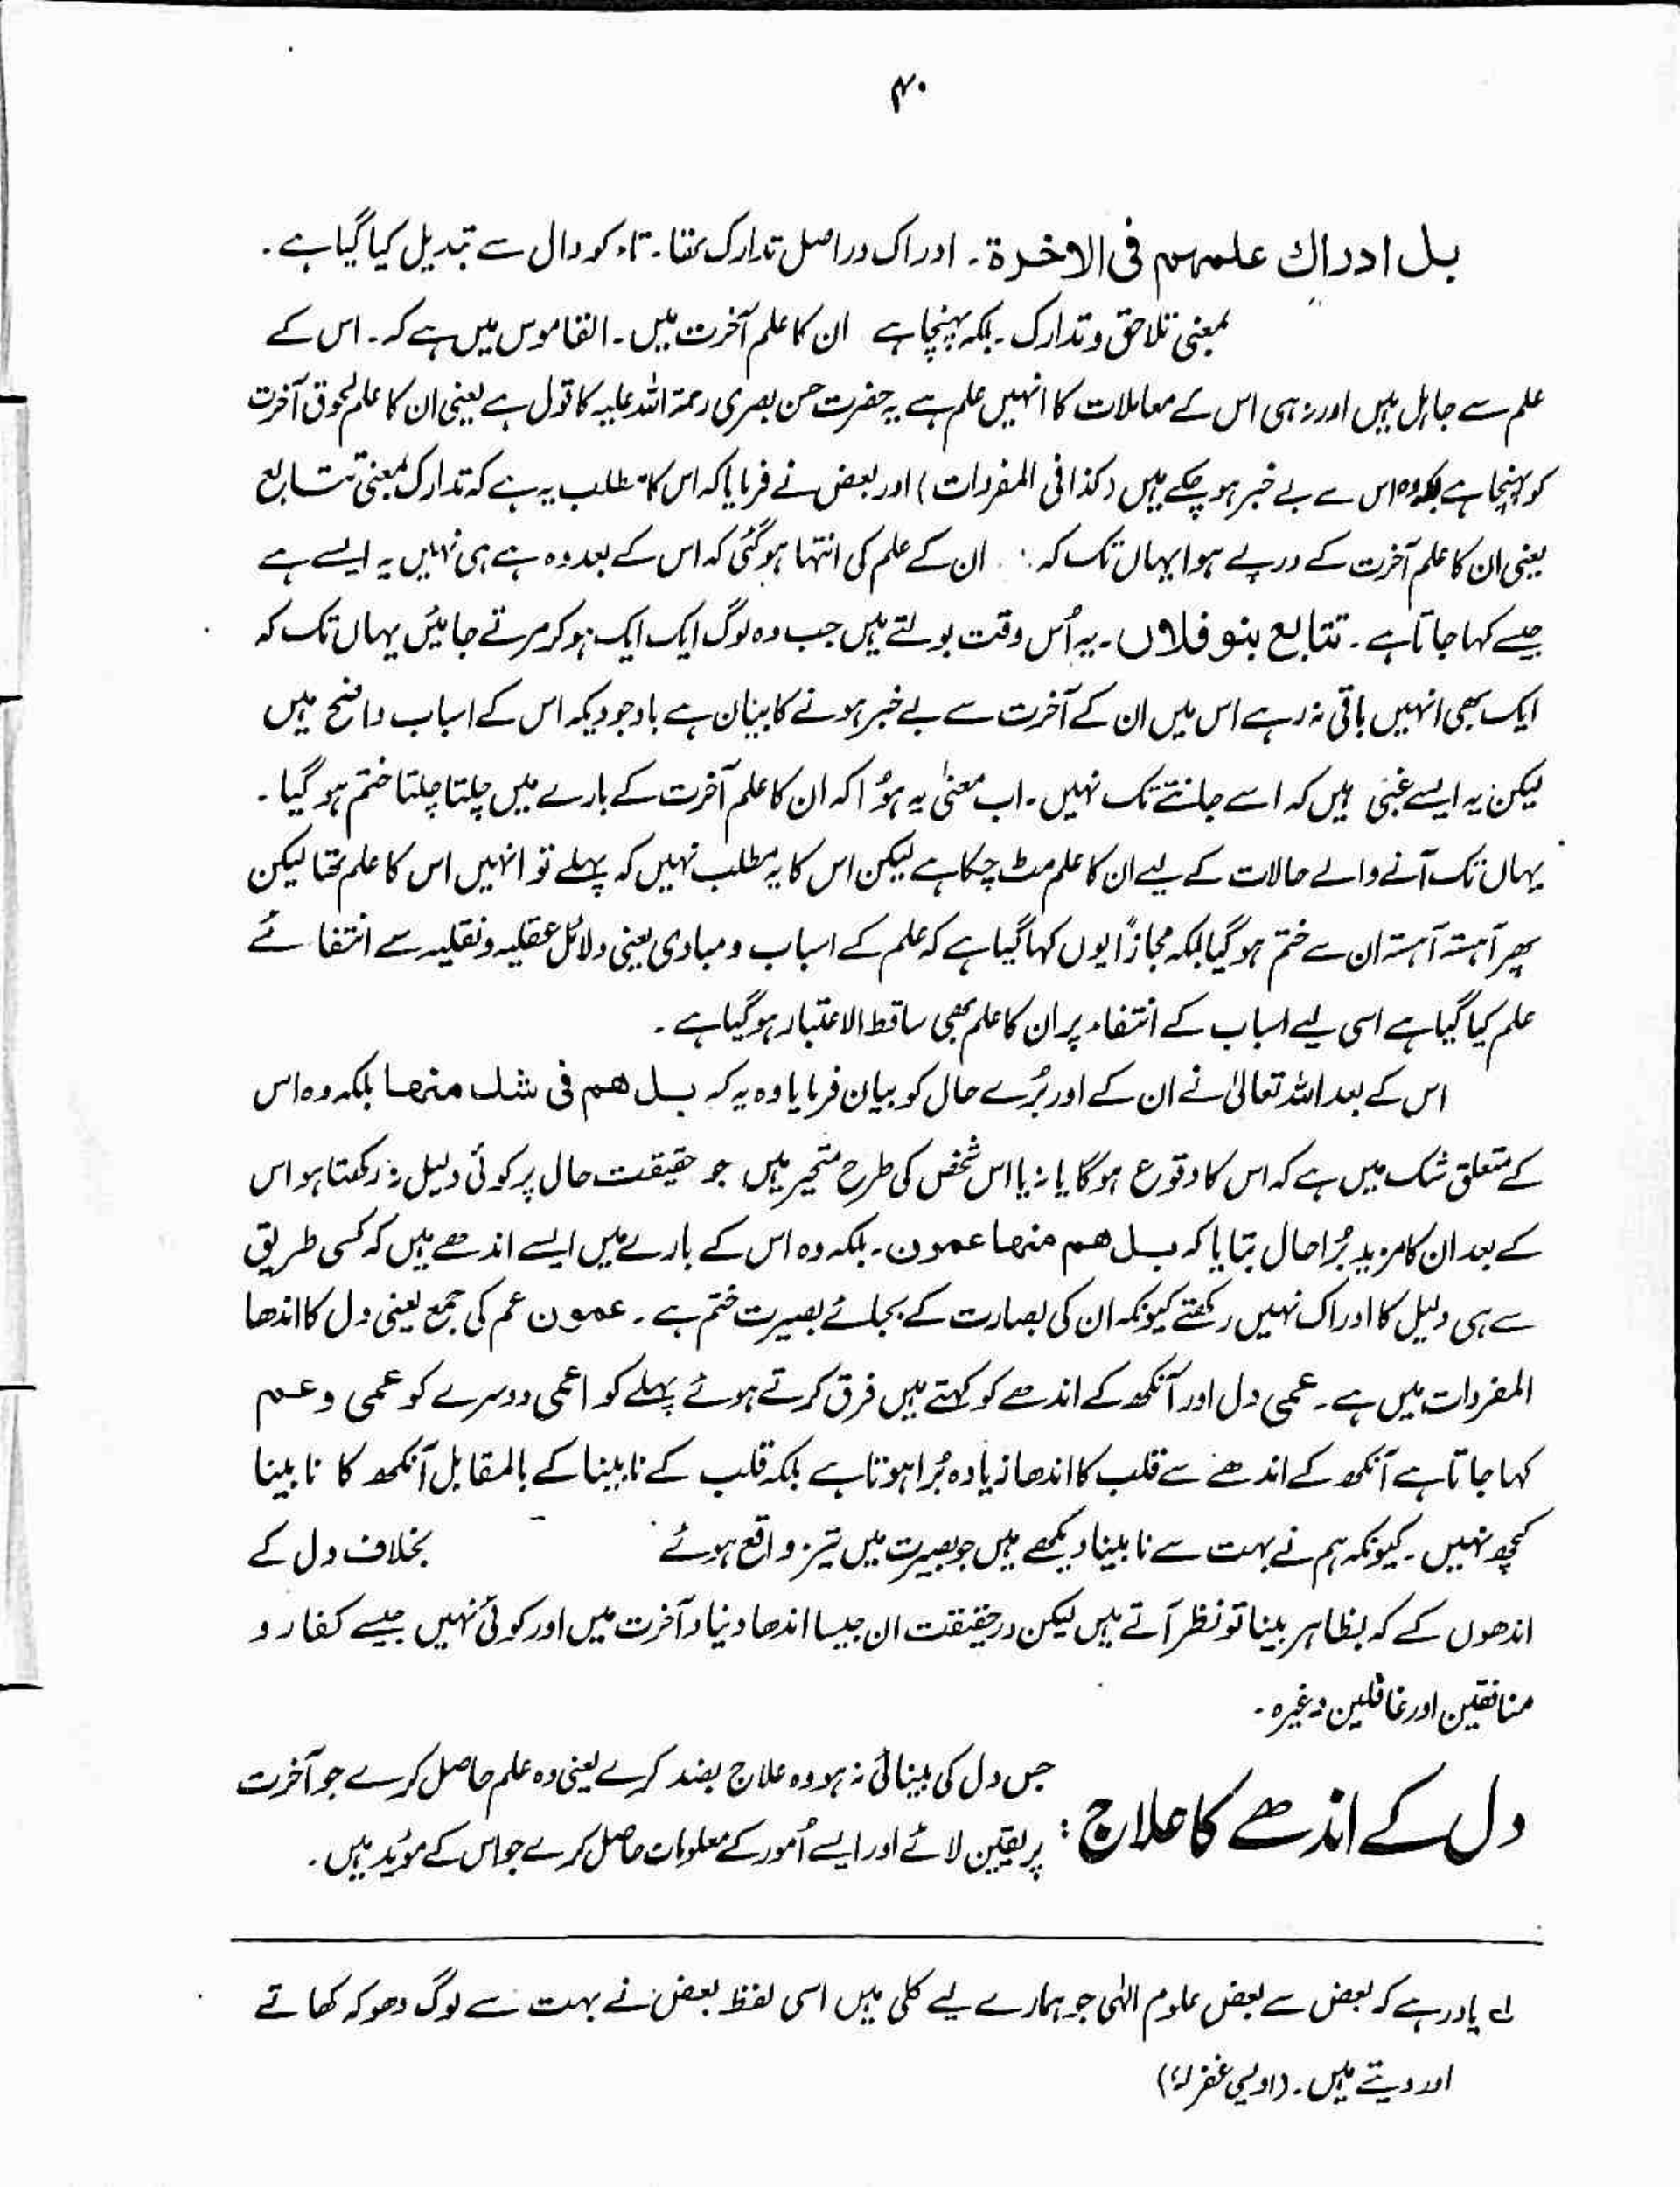 ۴۰
بل ادراك علمهم فی الاخرة ۔ ادراک دراصل تدارک تھا ۔ تاء کو دال سے تبدیل کیا گیا ہے ۔
بمعنی تلاحق و تدارک ۔ بلکہ پہنچا ہے ان کا علم آخرت میں ۔ القاموس میں ہے کہ ۔ اس کے
علم سے جاہل ہیں اور نہ ہی اس کے معاملات کا انہیں علم ہے یہ حضرت حسن بصری رحمۃ اللہ علیہ کا قول ہے یعنی ان کا علم لحوق آخرت
کو پہنچا ہے بلکہ وہ اس سے بے خبر ہو چکے ہیں (کذا فی المفردات) اور بعض نے فرمایا کہ اس کا مطلب یہ ہے کہ تدارک بمعنی تتابع
یعنی ان کا علم آخرت کے درپے ہوا یہاں تک کہ ان کے علم کی انتہا ہو گئی کہ اس کے بعد وہ ہے ہی نہیں یہ ایسے ہے
جیسے کہا جاتا ہے ۔ تتابع بنو فلاں ۔ یہ اُس وقت بولتے ہیں جب وہ لوگ ایک ایک ہو کر مرتے جائیں یہاں تک کہ
ایک بھی انہیں باقی نہ رہے اس میں ان کے آخرت سے بے خبر ہونے کا بیان ہے باوجودیکہ اس کے اسباب واضح ہیں
لیکن یہ ایسے غبی ہیں کہ اسے جانتے تک نہیں ۔ اب معنٰی یہ ہؤا کہ ان کا علم آخرت کے بارے میں چلتا چلتا ختم ہو گیا ۔
یہاں تک آنے والے حالات کے لیے ان کا علم مٹ چکا ہے لیکن اس کا یہ مطلب نہیں کہ پہلے تو انہیں اس کا علم تھا لیکن
پھر آہستہ آہستہ ان سے ختم ہو گیا بلکہ مجازاً یوں کہا گیا ہے کہ علم کے اسباب و مبادی یعنی دلائل عقلیہ و نقلیہ سے انتفائے
علم کیا گیا ہے اسی لیے اسباب کے انتفاء پر ان کا علم بھی ساقط الاعتبار ہو گیا ہے ۔
اس کے بعد اللہ تعالیٰ نے ان کے اور بُرے حال کو بیان فرمایا وہ یہ کہ بل هم فی شك منها بلکہ وہ اس
کے متعلق شک میں ہے کہ اس کا وقوع ہو گا یا نہ یا اس شخص کی طرح متحیر ہیں جو حقیقت حال پر کوئی دلیل نہ رکھتا ہو اس
کے بعد ان کا مزید بُرا حال بتایا کہ بل هم منها عمون ۔ بلکہ وہ اس کے بارے میں ایسے اندھے ہیں کہ کسی طریق
سے ہی دلیل کا ادراک نہیں رکھتے کیونکہ ان کی بصارت کے بجائے بصیرت ختم ہے ۔ عمون عم کی جمع یعنی دل کا اندھا
المفردات میں ہے ۔ عمی دل اور آنکھ کے اندھے کو کہتے ہیں فرق کرتے ہوئے پہلے کو اعمی دوسرے کو عمی و عم
کہا جاتا ہے آنکھ کے اندھے سے قلب کا اندھا زیادہ بُرا ہوتا ہے بلکہ قلب کے نابینا کے بالمقابل آنکھ کا نابینا
کچھ نہیں ۔ کیونکہ ہم نے بہت سے نابینا دیکھے ہیں جو بصیرت میں تیز واقع ہوئے بخلاف دل کے
اندھوں کے کہ بظاہر بینا تو نظر آتے ہیں لیکن درحقیقت ان جیسا اندھا دنیا و آخرت میں اور کوئی نہیں جیسے کفار و
منافقین اور غافلین وغیرہ ۔
دل کے اندھے کا علاج : جس دل کی بینائی نہ ہو وہ علاج بضد کرے یعنی وہ علم حاصل کرے جو آخرت
پر یقین لائے اور ایسے اُمور کے معلومات حاصل کرے جو اس کے مؤید ہیں ۔
لے یاد رہے کہ بعض سے بعض علوم الٰہی جو ہمارے لیے کلی ہیں اسی لفظ بعض نے بہت سے لوگ دھوکہ کھاتے
اور دیتے ہیں ۔ (اویسی غفرلہٗ)